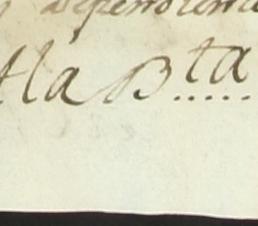 Dependencia
tla Bta.....